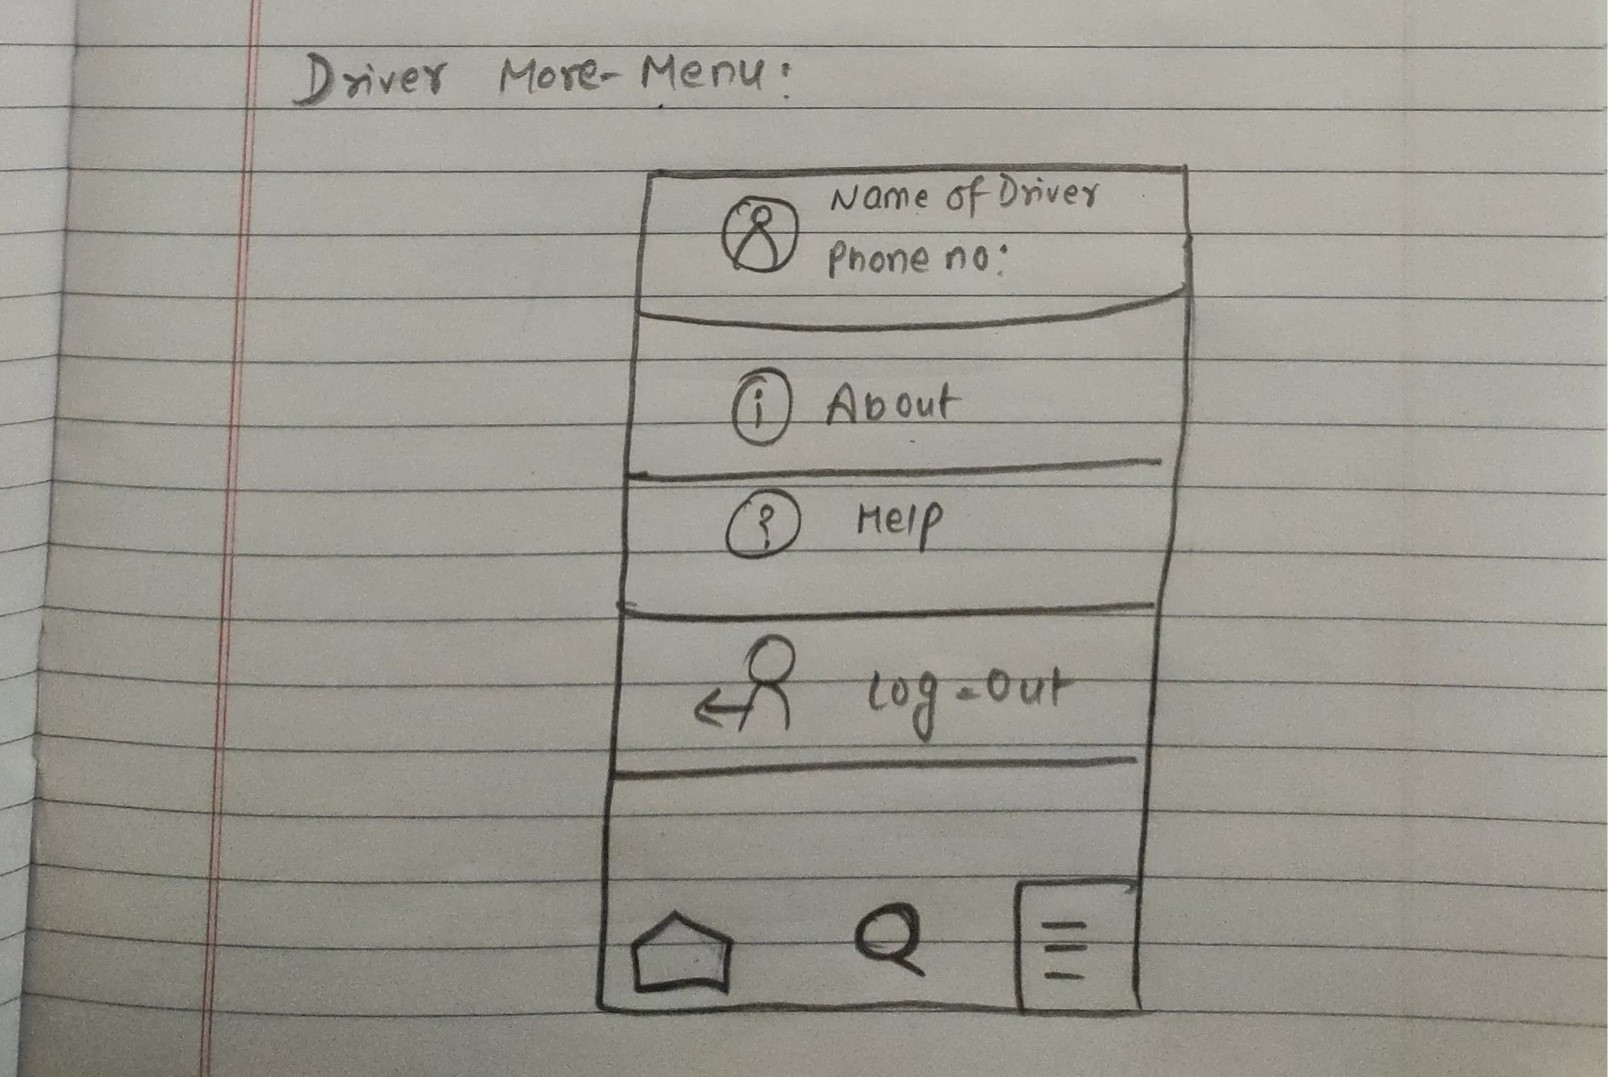 Driver More-Menu:
Name of Driver
Phone no:
i About
? Help
Log-Out